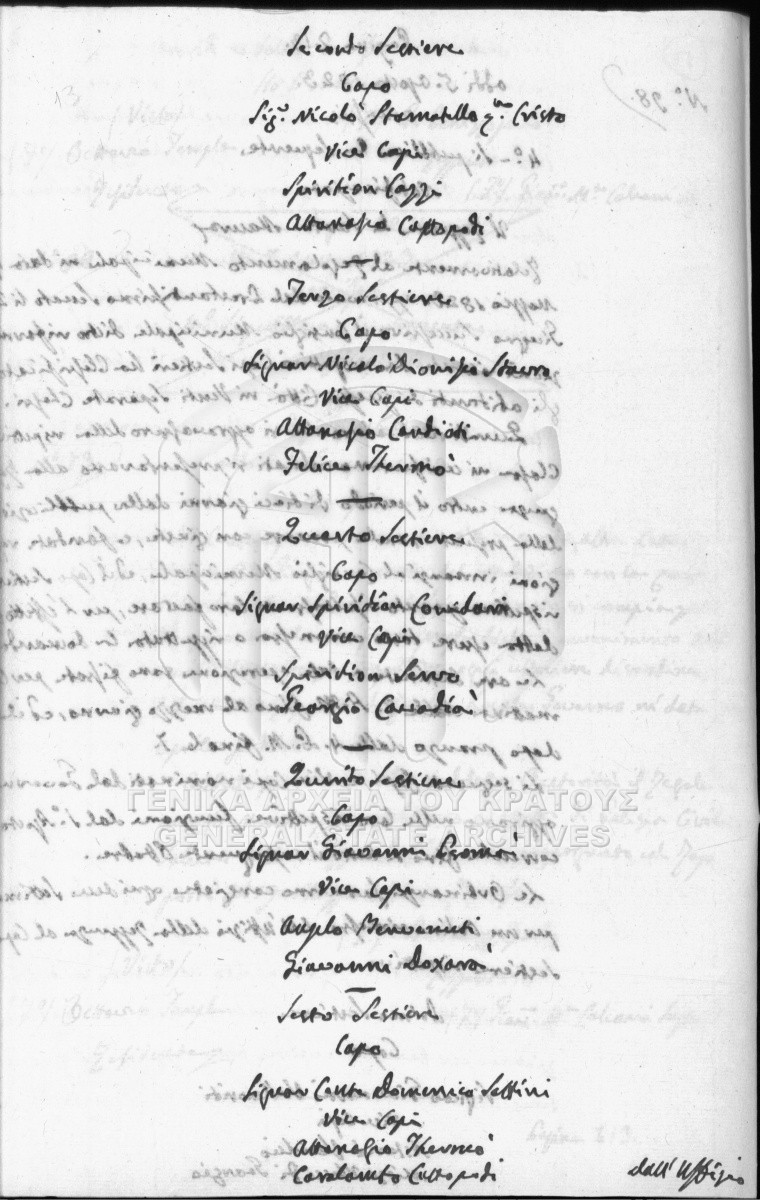 Secondo Sestiere
Capo
Sigr. Nicolò Stamatello qm. Cristo
Vice Capi
Spiridion Cazzi
Attanasio Cattopodi
Terzo Sestiere
Capo
Signor Nicolò Dionisio Stavro
Vice Capi
Attanasio Candioti
Felice Thermò
Quarto Sestiere
Capo
Signor Spiridion Condari
Vice Capi
Spiridion Servo
Georgio Cavadià
Quinto Sestiere
ΓΕΝΙΚΑ ΑΡΧΕΙΑ ΤΟΥ ΚΡΑΤΟΥΣ
Capo
GENERAL STATE ARCHIVES
Signor Giovanni
Vice Capi
Angelo Benvenuti
Giovanni Doxarà
Sesto Sestiere
Capo
Signor Conte Domenico Settini
Vice Capi
Attanasio Thermò
Caralambo Cattopodi
dall' Uffizio